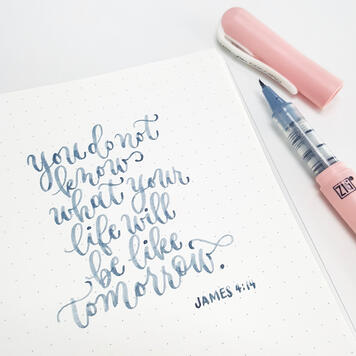 you do not
know
what your
life will
be like
tomorrow.
JAMES 4:14
ZIG